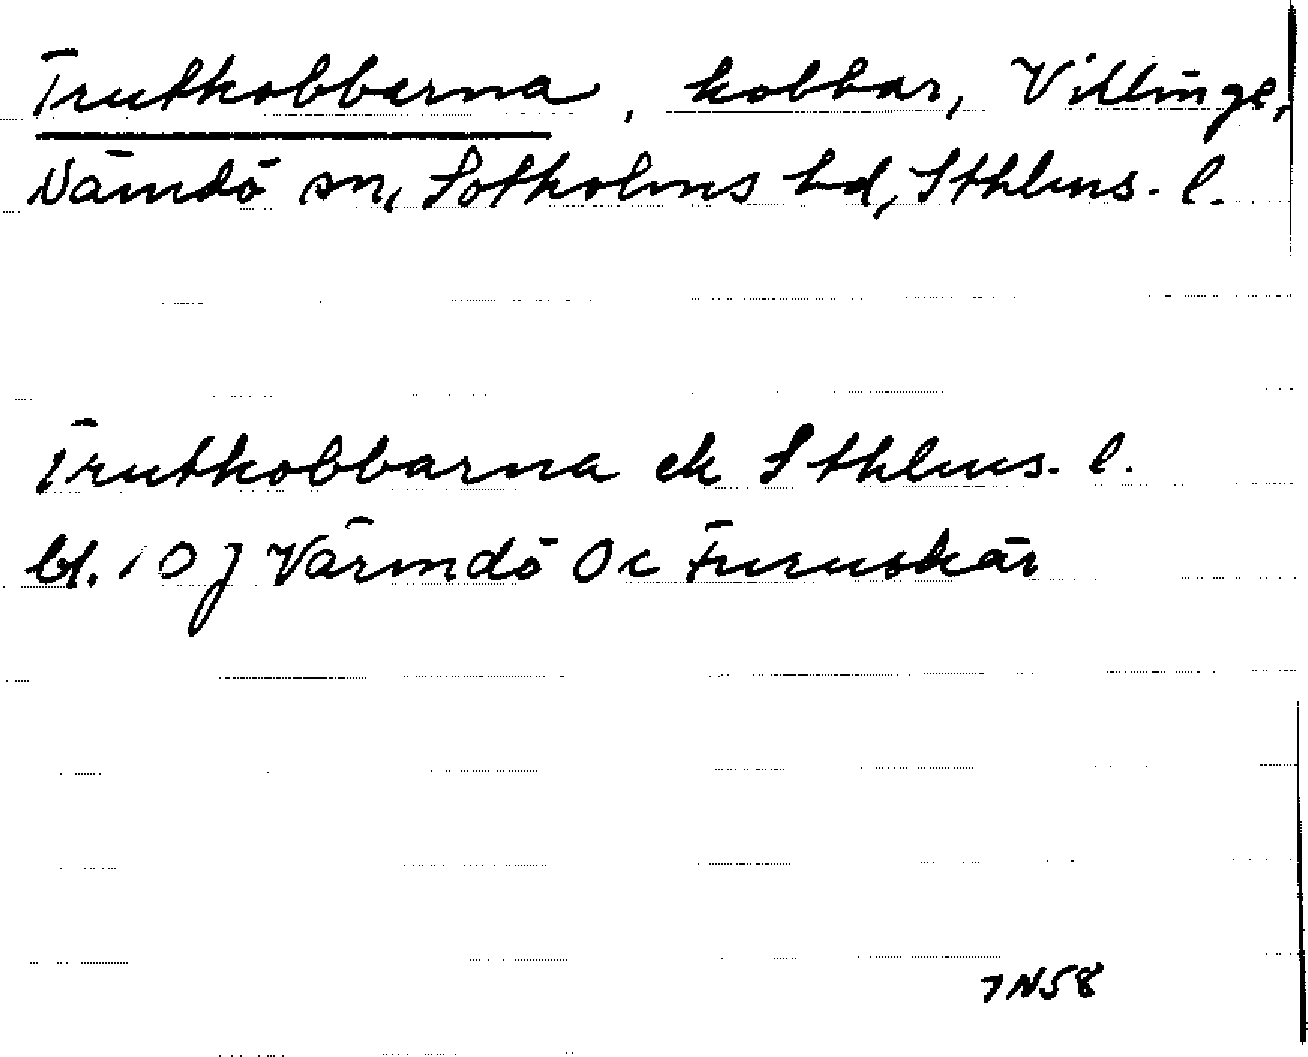 Trutkobbarna, kobbar, Villinge,
Nämdö sn, Sotholms hd, Sthlms. l.
Trutkobbarna ek Sthlms. l.
bl. 10 J Värmdö Oc Furuskär
7N58